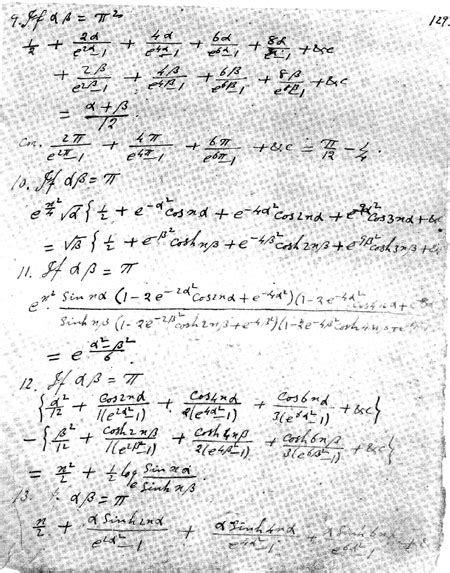 129.
9. If αβ = π²
1/2 + 2α/(e^{2α}-1) + 4α/(e^{4α}-1) + 6α/(e^{6α}-1) + 8α/(e^{8α}-1) + &c
+ 2β/(e^{2β}-1) + 4β/(e^{4β}-1) + 6β/(e^{6β}-1) + 8β/(e^{8β}-1) + &c
= (α+β)/12.
Cor. 2π/(e^{2π}-1) + 4π/(e^{4π}-1) + 6π/(e^{6π}-1) + &c = π/12 - 1/4.
10. If αβ = π
e^{n²/4} √α { 1/2 + e^{-α²} cos nα + e^{-4α²} cos 2nα + e^{-9α²} cos 3nα + &c
= √β { 1/2 + e^{-β²} cosh nβ + e^{-4β²} cosh 2nβ + e^{-9β²} cosh 3nβ + &c
11. If αβ = π
e^{n²} Sin nα (1-2e^{-2α²} Cos 2nα + e^{-4α²})(1-2e^{-4α²} cos 4nα +
Sinh nβ (1-2e^{-2β²} cosh 2nβ + e^{-4β²})(1-2e^{-4β²} cosh 4nβ +
= e^{(α²-β²)/6}.
12. If αβ = π
{ α²/12 + Cos 2nα/1(e^{2α²}-1) + Cos 4nα/2(e^{4α²}-1) + Cos 6nα/3(e^{6α²}-1) + &c }
- { β²/12 + Cosh 2nβ/1(e^{2β²}-1) + Cosh 4nβ/2(e^{4β²}-1) + Cosh 6nβ/3(e^{6β²}-1) + &c }
= n²/2 + 1/2 log_e Sin nα/Sinh nβ.
13. αβ = π
n/2 + α Sinh 2nα/(e^{2α²}-1) + α Sinh 4nα/(e^{4α²}-1) + α Sinh 6nα/(e^{6α²}-1)